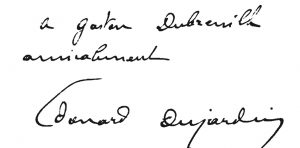 a Gaston Dubreuilh
amicalement
Edouard Dujardin